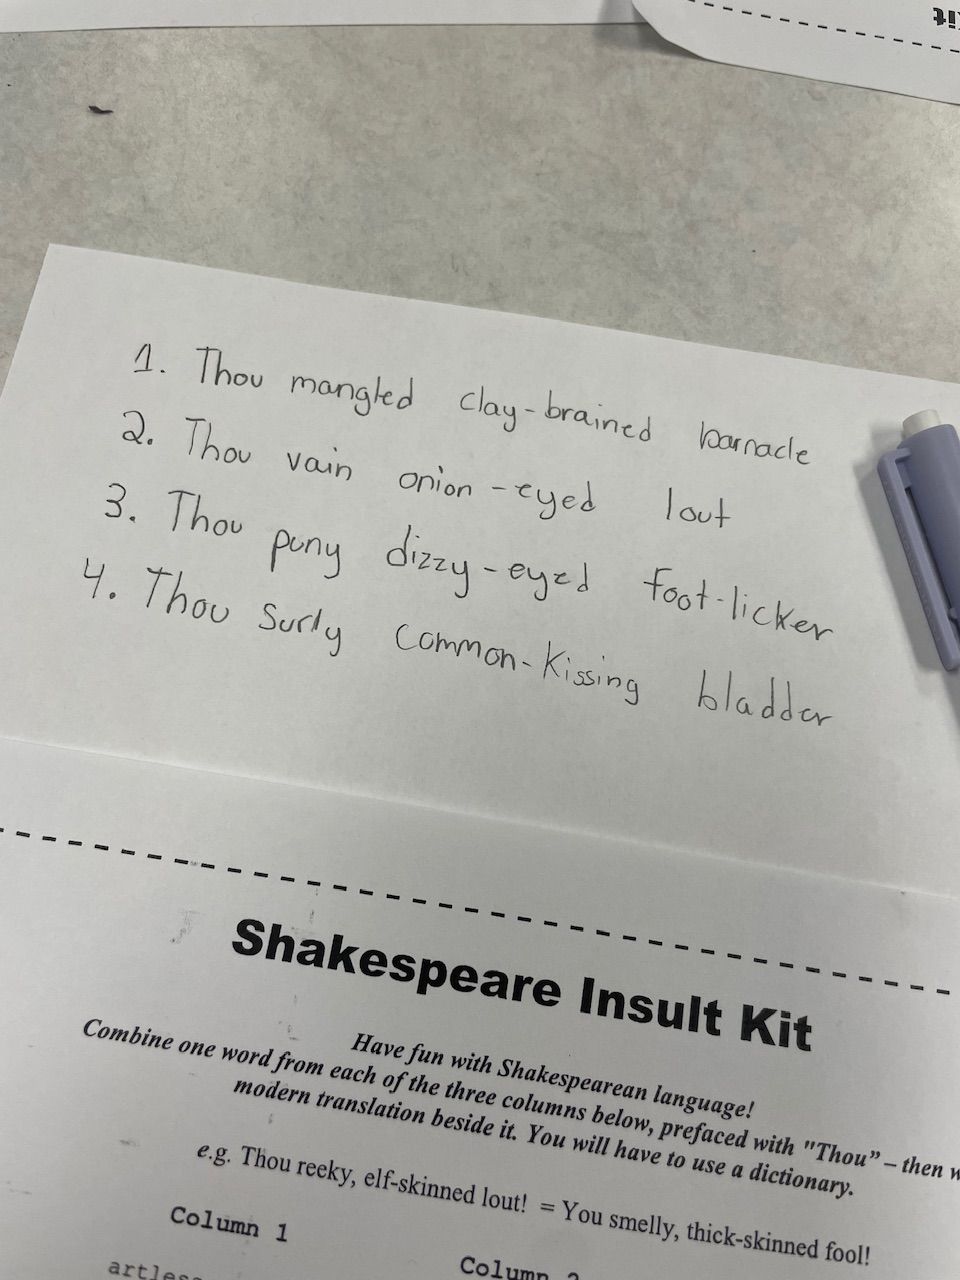 1. Thou mangled clay-brained barnacle
2. Thou vain onion-eyed lout
3. Thou puny dizzy-eyed foot-licker
4. Thou surly common-kissing bladder
Shakespeare Insult Kit
Have fun with Shakespearean language!
Combine one word from each of the three columns below, prefaced with "Thou” – then
modern translation beside it. You will have to use a dictionary.
e.g. Thou reeky, elf-skinned lout! = You smelly, thick-skinned fool!
Column 1
Column 2